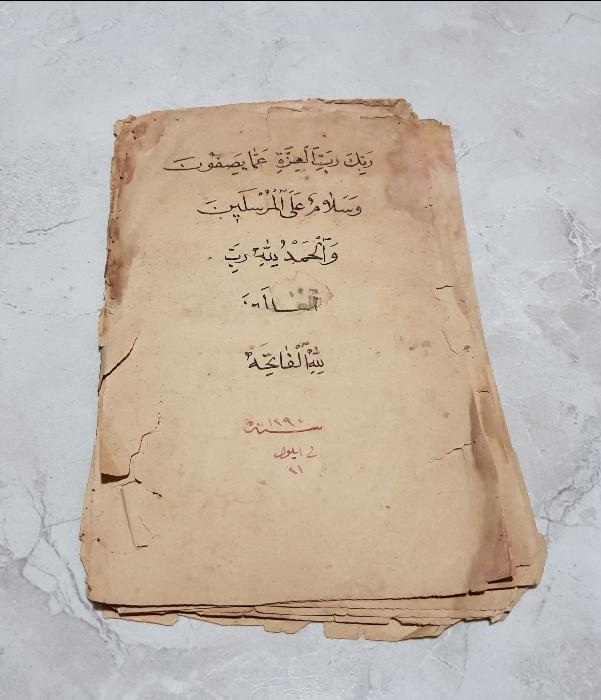 رَبِّكَ رَبِّ الْعِزَّةِ عَمَّا يَصِفُونَ
وَسَلَامٌ عَلَى الْمُرْسَلِينَ
وَالْحَمْدُ لِلَّهِ رَبِّ
لِلَّهِ الْفَاتِحَةْ
سنة ١٢٩٠
في ايلول
٢١